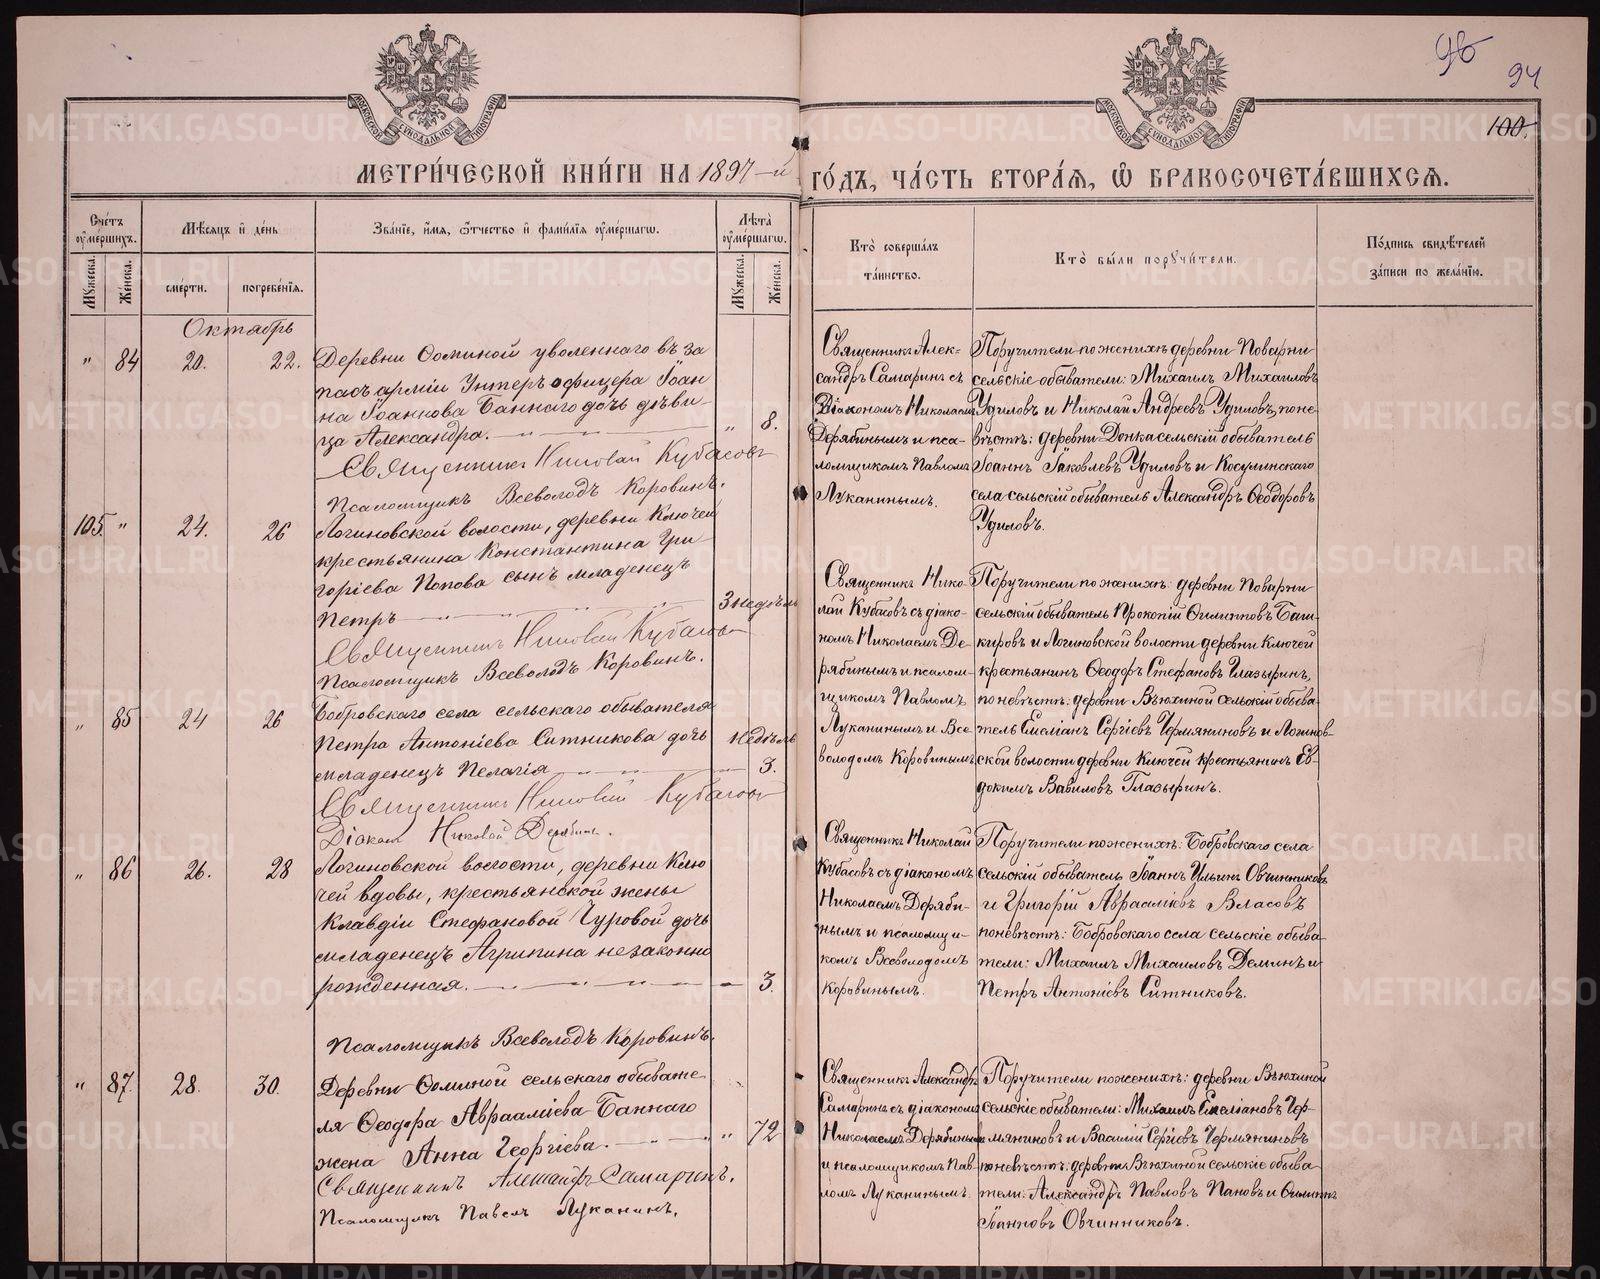 96
94
100.
МОСКОВСКОЙ СѴНОДАЛЬНОЙ ТИПОГРАФІИ
МОСКОВСКОЙ СѴНОДАЛЬНОЙ ТИПОГРАФІИ
МЕТРИ́ЧЕСКОЙ КНИ́ГИ НА 1897-й
ГО́ДЪ, ЧА́СТЬ ВТОРА́Я, Ѽ БРАКОСОЧЕТА́ВШИХСЯ.
Сче́тъ оуме́ршихъ.
Мѣ́сяцъ и҆ де́нь
Зва́нїе, и҆́мя, ѻ҆́тчество и҆ фами́лїя оуме́ршагѡ.
Лѣ́та оуме́ршагѡ.
Му́жеска.
Же́нска.
сме́рти.
погребе́нїя.
Му́жеска.
Же́нска.
Октябрь
" 84 20. 22. Деревни Ѳоминой уволеннаго въ за
пасъ арміи Унтеръ офицера Іоан
на Іоаннова Баннаго дочь дѣви-
ца Александра. " 8.
Священникъ Николай Кубасовъ
Псаломщикъ Всеволодъ Коровинъ.
105. " 24. 26 Логиновской волости, деревни Ключей
крестьянина Константина Гри-
горіева Попова сынъ младенецъ
Петръ 3 недѣль
Священникъ Николай Кубасовъ
Псаломщикъ Всеволодъ Коровинъ.
" 85 24 26 Бобровскаго села сельскаго обывателя
Петра Антоніева Ситникова дочь недѣль
младенецъ Пелагія 3.
Священникъ Николай Кубасовъ
Діаконъ Николай Дерябинъ.
" 86 26. 28 Логиновской волости, деревни Клю
чей вдовы, крестьянской жены
Клавдіи Стефановой Чуровой дочь
младенецъ Агрипина незаконно
рожденная. 3.
Псаломщикъ Всеволодъ Коровинъ.
" 87. 28. 30. Деревни Ѳоминой сельскаго обывате-
ля Ѳеодора Авраамiева Баннаго
жена Анна Георгіева. " 72
Священникъ Александръ Самаринъ.
Псаломщикъ Павелъ Луканинъ.
Кто̀ соверша́лъ та́инство.
Кто̀ бы́ли поручи́тели.
По́дпись свидѣ́телей за́писи по жела́нїю.
Священникъ Алек-
сандръ Самаринъ съ
Діакономъ Николаемъ
Дерябинымъ и пса-
ломщикомъ Павломъ
Луканинымъ.
Поручители по женихѣ: деревни Поварни
сельскіе обыватели: Михаилъ Михаиловъ
Удиловъ и Николай Андреевъ Удиловъ, по не-
вѣстѣ: деревни Донка сельскій обыватель
Іоаннъ Іаковлевъ Удиловъ и Косулинскаго
села сельскій обыватель Александръ Ѳеодоровъ
Удиловъ.
Священникъ Нико-
лай Кубасовъ съ діако-
номъ Николаемъ Де-
рябинымъ и псалом-
щикомъ Павломъ
Луканинымъ и Все-
володомъ Коровинымъ
Поручители по женихѣ: деревни Поварни
сельскій обыватель Прокопій Филипповъ Баш-
кировъ и Логиновской волости деревни Ключей
крестьянинъ Ѳеодоръ Стефановъ Глазыринъ,
по невѣстѣ: деревни Вьюхиной сельскій обыва-
тель Емеліанъ Сергіевъ Чермяниновъ и Логинов-
ской волости деревни Ключей крестьянинъ Ев-
докимъ Вавиловъ Глазыринъ.
Священникъ Николай
Кубасовъ съ діакономъ
Николаемъ Деряби-
нымъ и псаломщи-
комъ Всеволодомъ
Коровинымъ.
Поручители по женихѣ: Бобровскаго села
сельскій обыватель Іоаннъ Ильинъ Овчинниковъ
и Григорій Авраамiевъ Власовъ
по невѣстѣ: Бобровскаго села сельскіе обыва-
тели: Михаилъ Михаиловъ Деминъ и
Петръ Антоніевъ Ситниковъ.
Священникъ Александръ
Самаринъ съ діакономъ
Николаемъ Дерябинымъ
и псаломщикомъ Пав-
ломъ Луканинымъ.
Поручители по женихѣ: деревни Вьюхиной
сельскіе обыватели: Михаилъ Емеліановъ Чер-
мяниновъ и Василій Сергіевъ Чермяниновъ
по невѣстѣ: деревни Вьюхиной сельскіе обыва-
тели: Александръ Павловъ Пановъ и Филиппъ
Іоанновъ Овчинниковъ.
METRIKI.GASO-URAL.RU